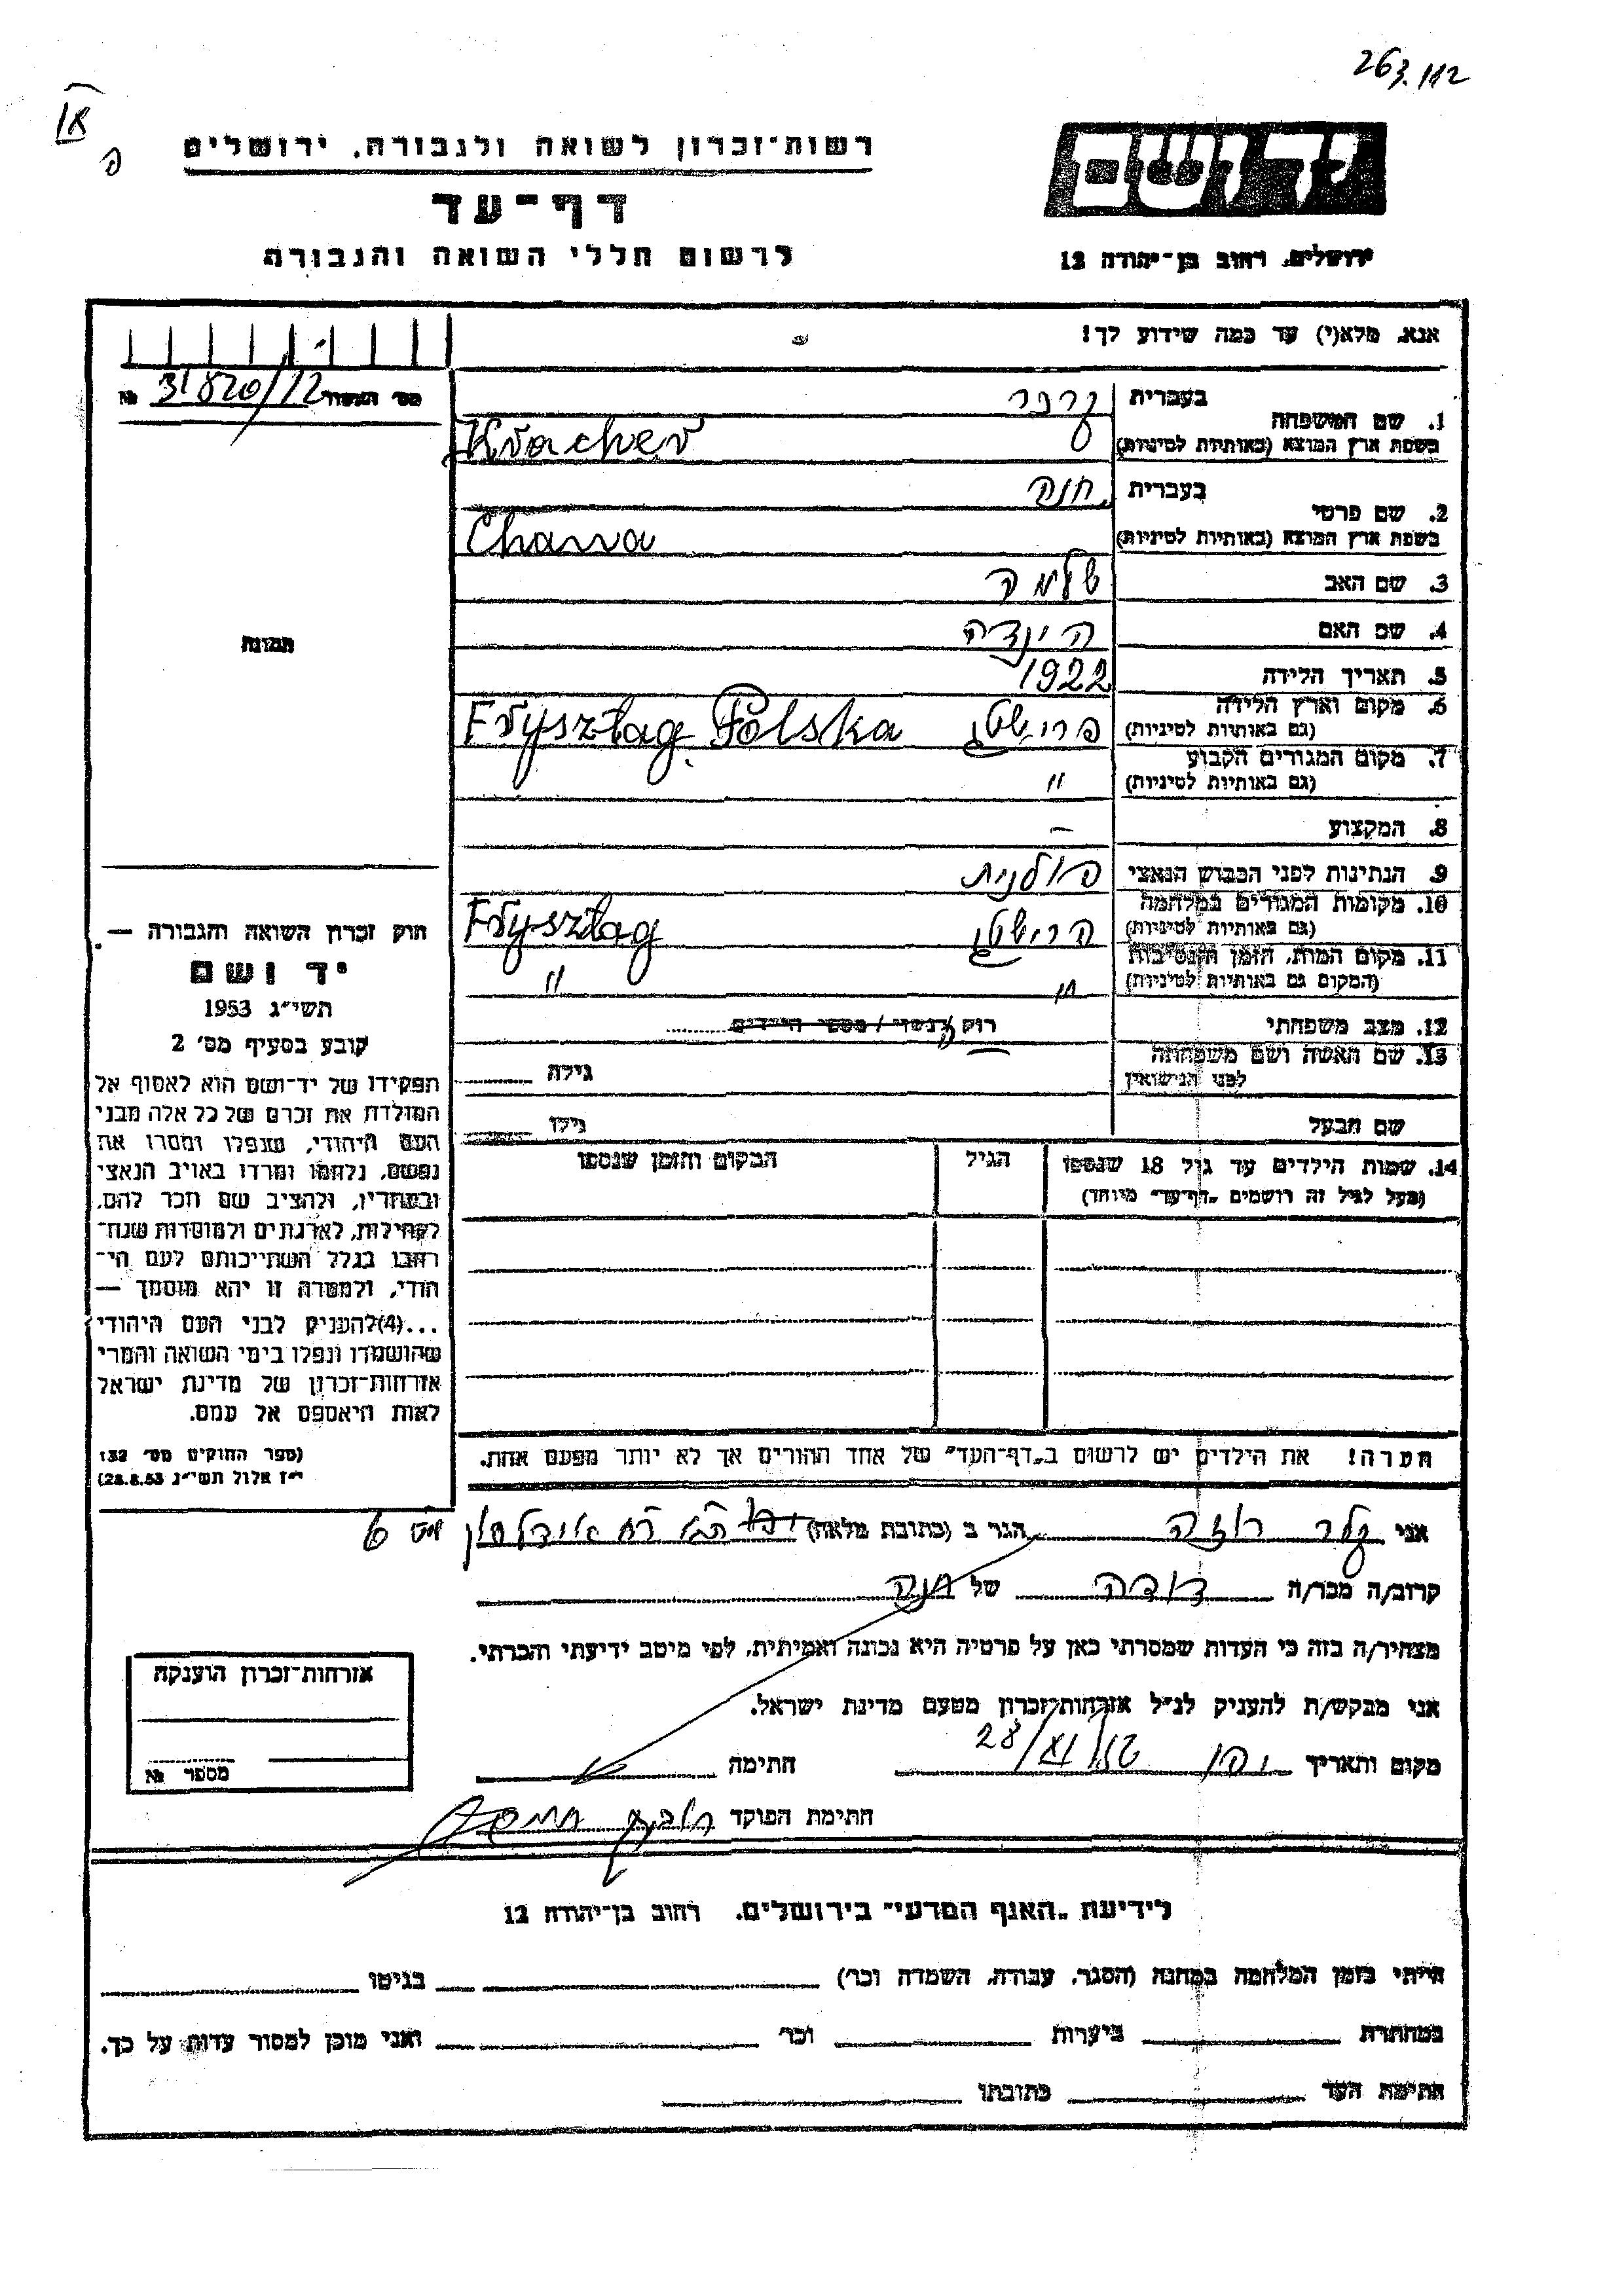 263.112
רשות-זכרון לשואה ולגבורה, ירושלים
דף-עד
לרשום חללי השואה והגבורה
ירושלים, רחוב בן-יהודה 12
אנא, מלא(י) עד כמה שידוע לך!
מס' האשור 31820/12 №
1. שם המשפחה בעברית קרכר
בשפת ארץ המוצא (באותיות לטיניות) Kracher
2. שם פרטי בעברית חנה
בשפת ארץ המוצא (באותיות לטיניות) Chana
3. שם האב שלמה
4. שם האם הינדה
5. תאריך הלידה 1922
6. מקום וארץ הלידה
(גם באותיות לטיניות) פרישטק Frysztag Polska
7. מקום המגורים הקבוע
(גם באותיות לטיניות) "
8. המקצוע –
9. הנתינות לפני הכבוש הנאצי פולנית
10. מקומות המגורים במלחמה
(גם באותיות לטיניות) פרישטק Frysztag
11. מקום המות, הזמן והנסיבות
(המקום גם באותיות לטיניות) " "
12. מצב משפחתי רוק/ה נשוי / מספר הילדים
13. שם האשה ושם משפחתה
לפני הנישואין גילה
שם הבעל גילו
14. שמות הילדים עד גיל 18 שנספו הגיל המקום והזמן שנספו
(מעל לגיל זה רושמים "דף-עד" מיוחד)
הערה! את הילדים יש לרשום ב"דף-העד" של אחד ההורים אך לא יותר מפעם אחת.
תמונה
חוק זכרון השואה והגבורה —
יד ושם
תשי"ג 1953
קובע בסעיף מס' 2
תפקידו של יד-ושם הוא לאסוף אל
המולדת את זכרם של כל אלה מבני
העם היהודי, שנפלו ומסרו את
נפשם, נלחמו ומרדו באויב הנאצי
ובעוזריו, ולהציב שם וזכר להם,
לקהילות, לארגונים ולמוסדות שנח-
רבו בגלל השתייכותם לעם הי-
הודי, ולמטרה זו יהא מוסמך —
...(4)להעניק לבני העם היהודי
שהושמדו ונפלו בימי השואה והמרי
אזרחות-זכרון של מדינת ישראל
לאות היאספם אל עמם.
(ספר החוקים מס' 132
י"ז אלול תשי"ג 28.8.53)
אני קלר רוזה הגר ב (כתובת מלאה) 6
קרוב/ה מכר/ה דודה של חנה
מצהיר/ה בזה כי העדות שמסרתי כאן על פרטיה היא נכונה ואמיתית, לפי מיטב ידיעתי והכרתי.
אני מבקש/ת להעניק לנ"ל אזרחות-זכרון מטעם מדינת ישראל.
מקום ותאריך חתימה
חתימת הפוקד
אזרחות-זכרון הוענקה
מספר №
לידיעת "האגף המדעי" בירושלים, רחוב בן-יהודה 12
הייתי בזמן המלחמה במחנה (הסגר, עבודה, השמדה וכו') בגיטו
במחתרת ביערות וכו' ואני מוכן למסור עדות על כך.
חתימת העד כתובתו